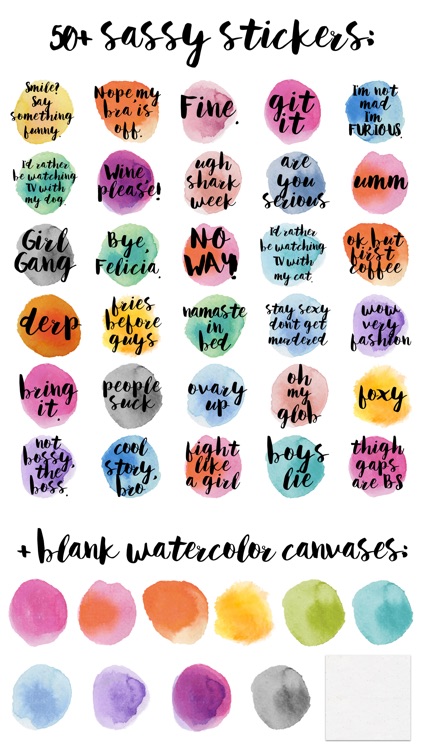 50+ sassy stickers:
Smile?
Say
something
funny.
Nope my
bra is
off.
Fine.
git
it
I'm not
mad
I'm
FURIOUS.
I'd rather
be watching
TV with
my dog.
Wine
please!
ugh
shark
week
are
you
serious
umm
Girl
Gang
Bye,
Felicia.
NO
WAY!
I'd rather
be watching
TV with
my cat.
ok but
first
coffee
derp
fries
before
guys
namaste
in
bed
stay sexy
don't get
murdered
wow
very
fashion
bring
it.
people
suck
ovary
up
oh
my
glob
foxy
not
bossy,
the
boss.
cool
story,
bro
fight
like
a girl
boys
lie
thigh
gaps
are BS
+ blank watercolor canvases: